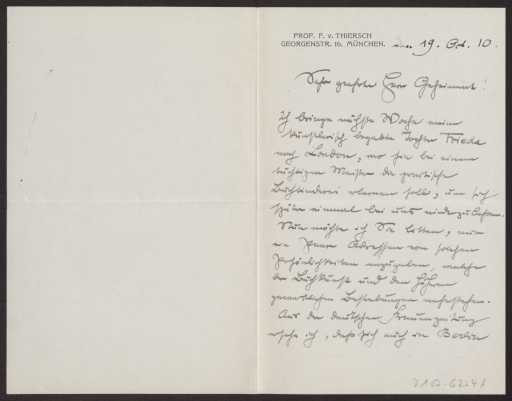 PROF. F. v. THIERSCH
GEORGENSTR. 16. MÜNCHEN. den 19. Oct. 10.
Sehr geehrter Herr Geheimrat!
Ich bringe nächste Woche meine
künstlerisch begabte Tochter Frieda
nach London, wo sie bei einem
tüchtigen Meister die praktische
Buchbinderei erlernen soll, um sich
später einmal bei uns niederzulassen.
Nun möchte ich Sie bitten, mir
ein Paar Adressen von solchen
Persönlichkeiten anzugeben, welche
der Buchkunst und den höheren
gewerblichen Bestrebungen nahestehen.
Aus der deutschen Frauenzeitung
ersehe ich, daß sich auch in Berlin